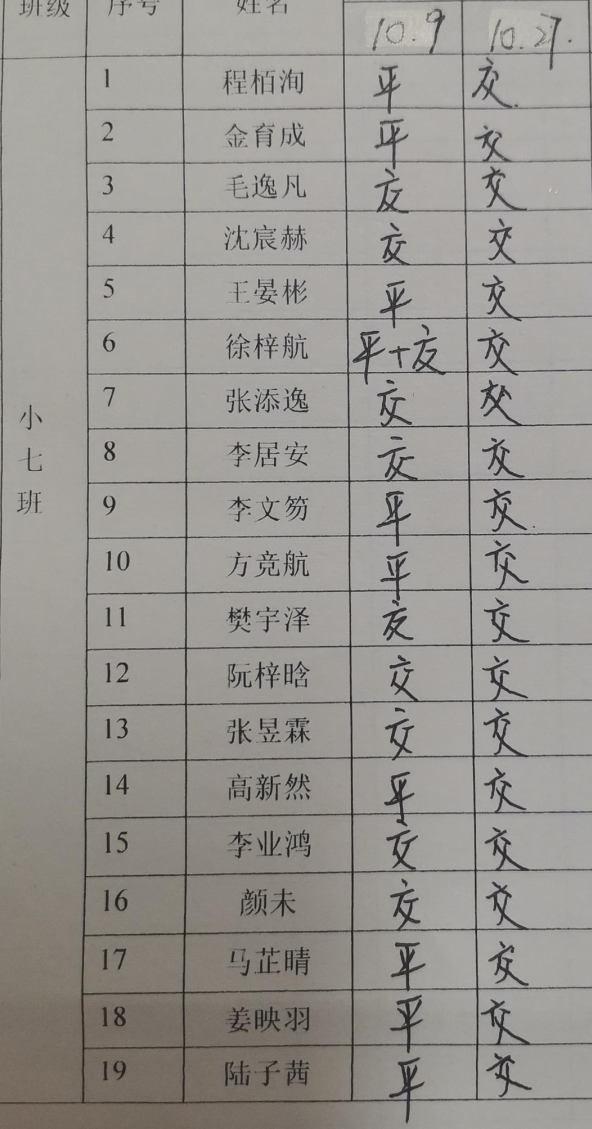 班级 序号 姓名 10.9 10.27.
1 程栢洵 平 交
2 金育成 平 交
3 毛逸凡 交 交
4 沈宸赫 交 交
5 王晏彬 平 交
6 徐梓航 平+交 交
7 张添逸 交 交
8 李居安 交 交
9 李文笏 平 交
10 方竞航 平 交
11 樊宇泽 交 交
12 阮梓晗 交 交
13 张昱霖 交 交
14 高新然 平 交
15 李业鸿 交 交
16 颜未 交 交
17 马芷晴 平 交
18 姜映羽 平 交
19 陆子茜 平 交
小
七
班